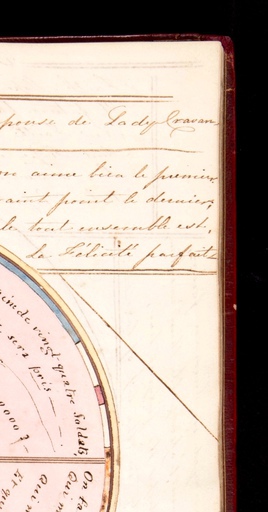 ponse de Lady Cravan
on aime bien le premier
raint point le dernier,
le tout ensemble est,
la Félicité parfait
de vingt-quatre Soldats,
sera pris
0000?
On ta
Qui